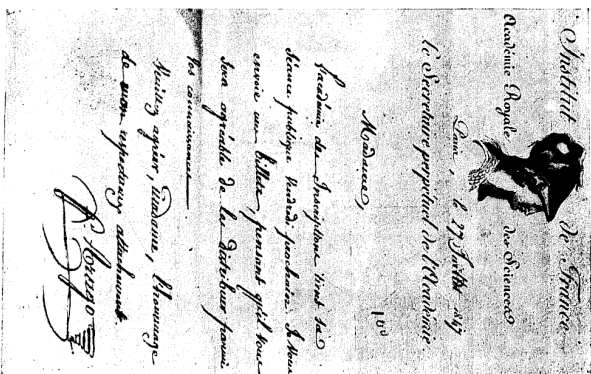 Institut de France
Académie Royale des Sciences
Paris, le 27 Juillet 1847
le Secrétaire perpétuel de l'Académie
100
Madame,
l'académie des Inscriptions tient sa
séance publique vendredi prochain. Je vous
envoie un billet, pensant qu'il vous
sera agréable de le distribuer parmi
vos connaissances
Veuillez agréer, Madame, l'hommage
de mon respectueux attachement.
F. Arago